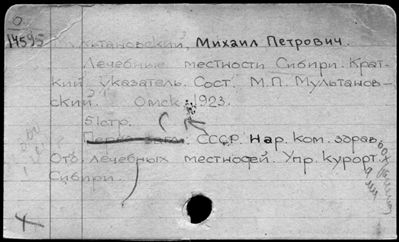 О
14595
Мультановский, Михаил Петрович.
Лечебные местности Сибири. Крат-
кий указатель. Сост. М.П. Мультанов-
ский. Омск. 1923.
51стр.
СССР. Нар. ком. здрав
Отд. лечебных местностей. Упр. курорт.
Сибири.